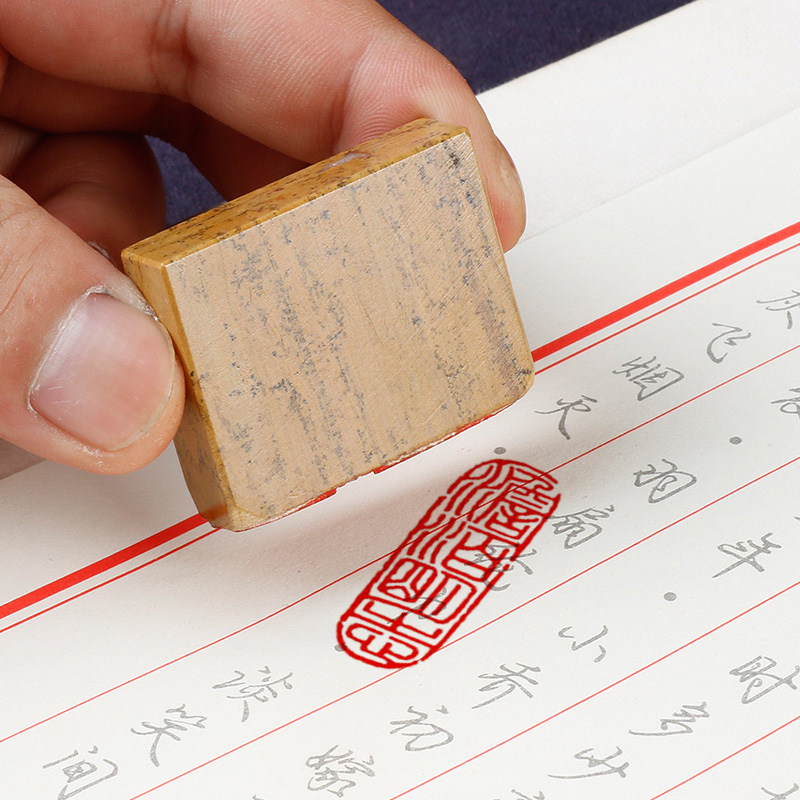 时多少
年·小乔初嫁
发·羽扇纶巾·谈笑间
灰飞烟灭·